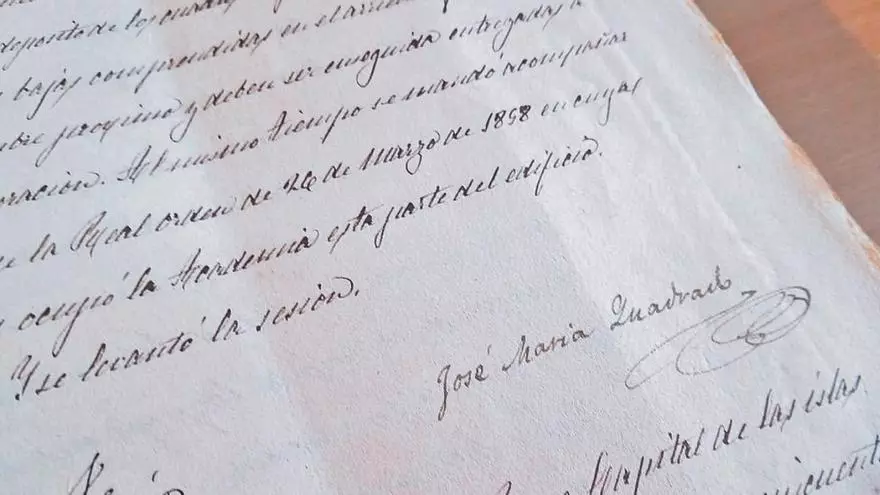 deposito de los cuadros
bajas comprendidas en el
proximo y deben ser enseguida entregadas a
oracion. Al mismo tiempo se mandó acompañar
la Real orden de 26 de Marzo de 1858 en cuyas
ocupó la Academia esta parte del edificio.
Y se levantó la sesion.
José Maria Quadrado
Capital de las islas